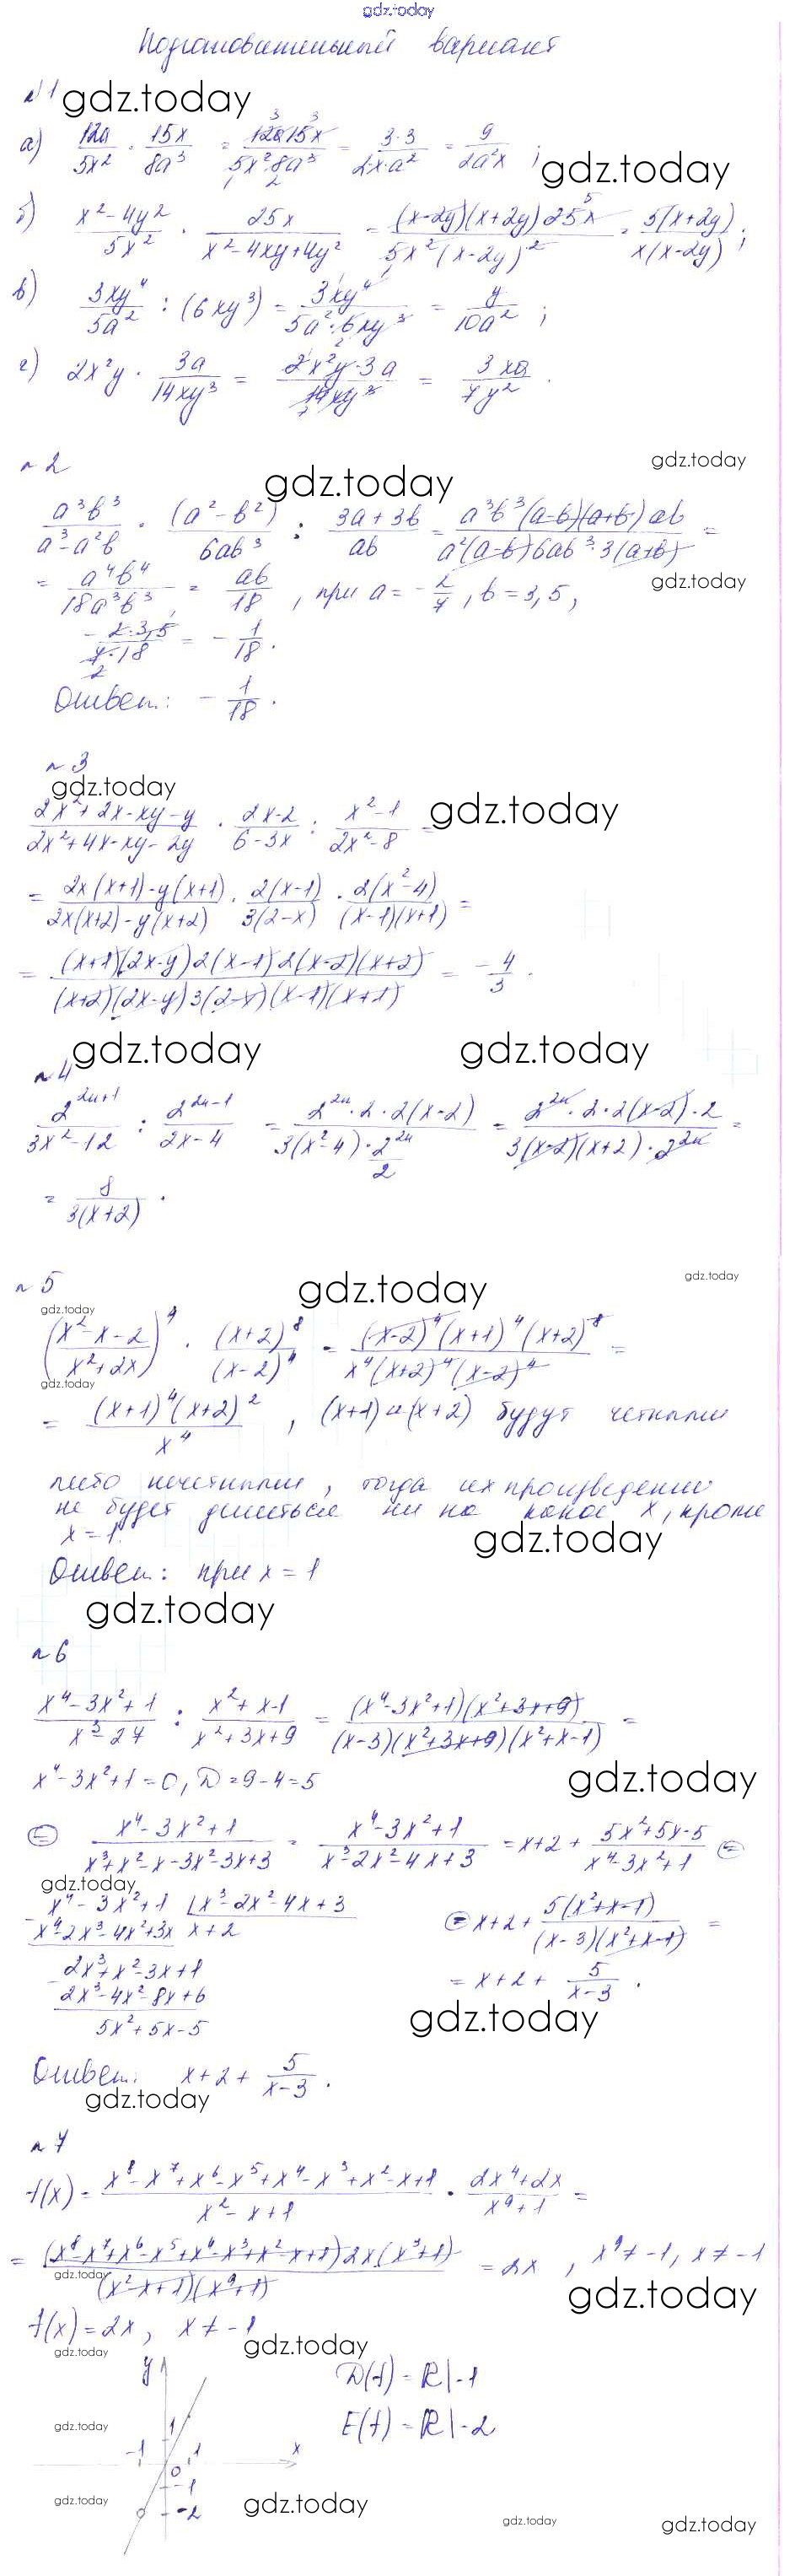 gdz.today
Подготовительный вариант
№1 gdz.today
а) 12a/5x² · 15x/8a³ = 12a·15x/5x²·8a³ = 3·3/2x·a² = 9/2a²x ; gdz.today
б) x²-4y²/5x² · 25x/x²-4xy+4y² = (x-2y)(x+2y)25x/5x²(x-2y)² = 5(x+2y)/x(x-2y) ;
в) 3xy⁴/5a² : (6xy³) = 3xy⁴/5a²·6xy³ = y/10a² ;
г) 2x²y · 3a/14xy³ = 2x²y·3a/14xy³ = 3xa/7y² .
№2 gdz.today
gdz.today
a³b³/a³-a²b · (a²-b²)/6ab³ : 3a+3b/ab = a³b³(a-b)(a+b)ab/a²(a-b)6ab³·3(a+b) =
= a⁴b⁴/18a³b³ = ab/18 , при a = -2/7 , b = 3,5 , gdz.today
-2·3,5/7·18 = -1/18 .
Ответ: -1/18 .
№3
gdz.today
2x²+2x-xy-y/2x²+4x-xy-2y · 2x-2/6-3x : x²-1/2x²-8 = gdz.today
= 2x(x+1)-y(x+1)/2x(x+2)-y(x+2) · 2(x-1)/3(2-x) · 2(x²-4)/(x-1)(x+1) =
= (x+1)(2x-y)2(x-1)2(x-2)(x+2)/(x+2)(2x-y)3(2-x)(x-1)(x+1) = -4/3 .
№4 gdz.today gdz.today
2²ⁿ⁺¹/3x²-12 : 2²ⁿ⁻¹/2x-4 = 2²ⁿ·2·2(x-2)/3(x²-4)·2²ⁿ/2 = 2²ⁿ·2·2(x-2)·2/3(x-2)(x+2)·2²ⁿ =
= 8/3(x+2) .
№5 gdz.today gdz.today
gdz.today
(x²-x-2/x²+2x)⁴ · (x+2)⁸/(x-2)⁴ = (x-2)⁴(x+1)⁴(x+2)⁸/x⁴(x+2)⁴(x-2)⁴ =
gdz.today
= (x+1)⁴(x+2)²/x⁴ , (x+1) и (x+2) будут четными
либо нечетными, тогда их произведение
не будет делиться ни на какое x, кроме
x = 1. gdz.today
Ответ: при x = 1
gdz.today
№6
x⁴-3x²+1/x³-27 : x²+x-1/x²+3x+9 = (x⁴-3x²+1)(x²+3x+9)/(x-3)(x²+3x+9)(x²+x-1) =
x⁴-3x²+1=0, D=9-4=5 gdz.today
= x⁴-3x²+1/x³+x²-x-3x²-3x+3 = x⁴-3x²+1/x³-2x²-4x+3 = x+2+ 5x²+5x-5/x⁴-3x²+1 =
gdz.today
x⁴-3x²+1 | x³-2x²-4x+3
x⁴-2x³-4x²+3x x+2
= x+2+ 5(x²+x-1)/(x-3)(x²+x-1) =
2x³+x²-3x+1
2x³-4x²-8x+6
= x+2+ 5/x-3 .
5x²+5x-5
gdz.today
Ответ: x+2+ 5/x-3 .
gdz.today
№7
f(x)= x⁸-x⁷+x⁶-x⁵+x⁴-x³+x²-x+1/x²-x+1 · 2x⁴+2x/x⁹+1 =
= (x⁸-x⁷+x⁶-x⁵+x⁴-x³+x²-x+1)2x(x³+1)/(x²-x+1)(x⁹+1) = 2x , x⁹≠-1, x≠-1
gdz.today gdz.today
f(x)=2x, x≠-1
gdz.today gdz.today
y D(f) = R|-1
gdz.today 1 E(f) = R|-2
-1 1 x
0
-1
gdz.today -2 gdz.today
gdz.today gdz.today